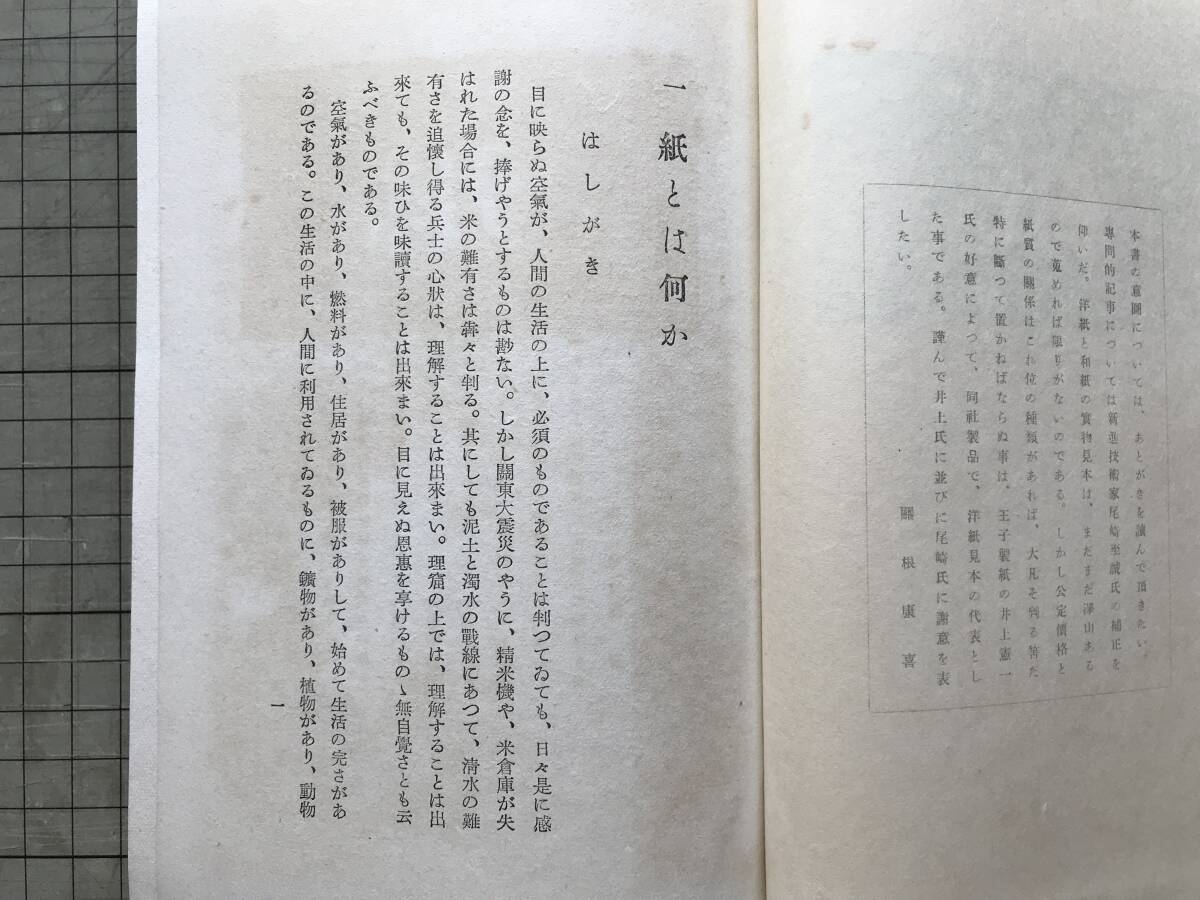 本書の意圖については、あとがきを讀んで頂きたい。
專問的記事については新進技術家尾崎至誠氏の補正を
仰いだ。洋紙と和紙の實物見本は、まだまだ澤山ある
ので蒐めれば限りがないのである。しかし公定價格と
紙質の關係はこれ位の種類があれば、大凡そ判る筈だ
特に斷つて置かねばならぬ事は、王子製紙の井上憲一
氏の好意によつて、同社製品で、洋紙見本の代表とし
た事である。謹んで井上氏に並びに尾崎氏に謝意を表
したい。
關根康喜
一 紙とは何か
はしがき
目に映らぬ空氣が、人間の生活の上に、必須のものであることは判つてゐても、日々是に感
謝の念を、捧げやうとするものは尠ない。しかし關東大震災のやうに、精米機や、米倉庫が失
はれた場合には、米の難有さは犇々と判る。其にしても泥土と濁水の戰線にあつて、淸水の難
有さを追懷し得る兵士の心狀は、理解することは出來まい。理窟の上では、理解することは出
來ても、その味ひを味讀することは出來まい。目に見えぬ恩惠を享けるものゝ無自覺さとも云
ふべきものである。
空氣があり、水があり、燃料があり、住居があり、被服がありして、始めて生活の完さがあ
るのである。この生活の中に、人間に利用されてゐるものに、鑛物があり、植物があり、動物
一